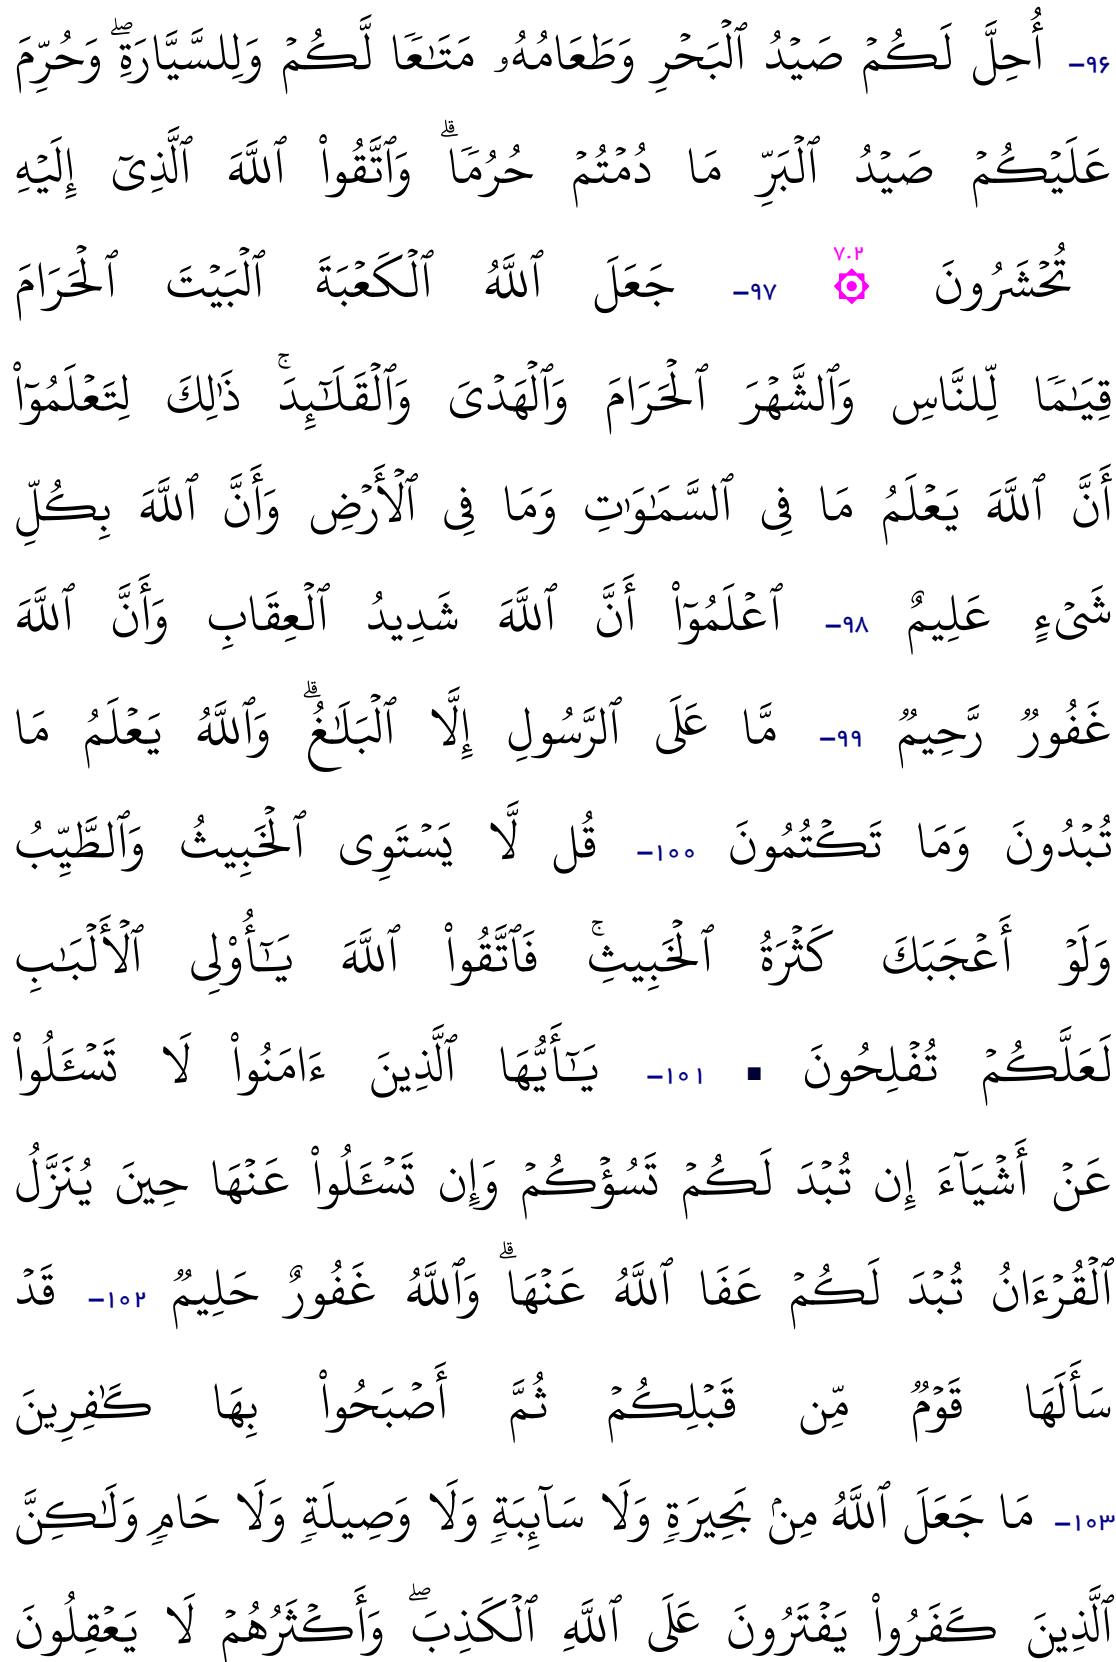 ۹۶- أُحِلَّ لَكُمۡ صَيۡدُ ٱلۡبَحۡرِ وَطَعَامُهُۥ مَتَٰعٗا لَّكُمۡ وَلِلسَّيَّارَةِۖ وَحُرِّمَ
عَلَيۡكُمۡ صَيۡدُ ٱلۡبَرِّ مَا دُمۡتُمۡ حُرُمٗاۗ وَٱتَّقُواْ ٱللَّهَ ٱلَّذِيٓ إِلَيۡهِ
تُحۡشَرُونَ ۞ ۷.۲ ۹۷- جَعَلَ ٱللَّهُ ٱلۡكَعۡبَةَ ٱلۡبَيۡتَ ٱلۡحَرَامَ
قِيَٰمٗا لِّلنَّاسِ وَٱلشَّهۡرَ ٱلۡحَرَامَ وَٱلۡهَدۡيَ وَٱلۡقَلَٰٓئِدَۚ ذَٰلِكَ لِتَعۡلَمُوٓاْ
أَنَّ ٱللَّهَ يَعۡلَمُ مَا فِي ٱلسَّمَٰوَٰتِ وَمَا فِي ٱلۡأَرۡضِ وَأَنَّ ٱللَّهَ بِكُلِّ
شَيۡءٍ عَلِيمٌ ۹۸- ٱعۡلَمُوٓاْ أَنَّ ٱللَّهَ شَدِيدُ ٱلۡعِقَابِ وَأَنَّ ٱللَّهَ
غَفُورٞ رَّحِيمٞ ۹۹- مَّا عَلَى ٱلرَّسُولِ إِلَّا ٱلۡبَلَٰغُۗ وَٱللَّهُ يَعۡلَمُ مَا
تُبۡدُونَ وَمَا تَكۡتُمُونَ ۱۰۰- قُل لَّا يَسۡتَوِي ٱلۡخَبِيثُ وَٱلطَّيِّبُ
وَلَوۡ أَعۡجَبَكَ كَثۡرَةُ ٱلۡخَبِيثِۚ فَٱتَّقُواْ ٱللَّهَ يَٰٓأُوْلِي ٱلۡأَلۡبَٰبِ
لَعَلَّكُمۡ تُفۡلِحُونَ ▪ ۱۰۱- يَٰٓأَيُّهَا ٱلَّذِينَ ءَامَنُواْ لَا تَسۡـَٔلُواْ
عَنۡ أَشۡيَآءَ إِن تُبۡدَ لَكُمۡ تَسُؤۡكُمۡ وَإِن تَسۡـَٔلُواْ عَنۡهَا حِينَ يُنَزَّلُ
ٱلۡقُرۡءَانُ تُبۡدَ لَكُمۡ عَفَا ٱللَّهُ عَنۡهَاۗ وَٱللَّهُ غَفُورٌ حَلِيمٞ ۱۰۲- قَدۡ
سَأَلَهَا قَوۡمٞ مِّن قَبۡلِكُمۡ ثُمَّ أَصۡبَحُواْ بِهَا كَٰفِرِينَ
۱۰۳- مَا جَعَلَ ٱللَّهُ مِنۢ بَحِيرَةٖ وَلَا سَآئِبَةٖ وَلَا وَصِيلَةٖ وَلَا حَامٖ وَلَٰكِنَّ
ٱلَّذِينَ كَفَرُواْ يَفۡتَرُونَ عَلَى ٱللَّهِ ٱلۡكَذِبَۖ وَأَكۡثَرُهُمۡ لَا يَعۡقِلُونَ